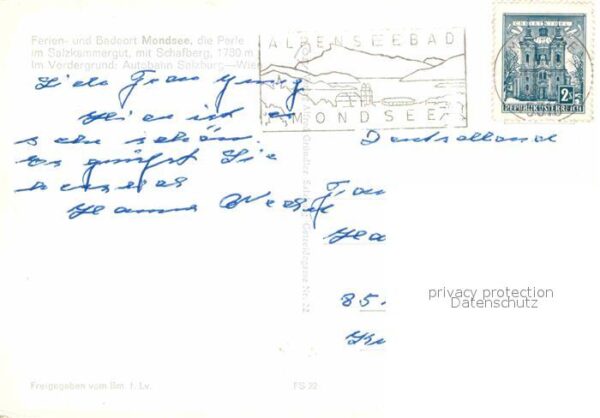 Ferien- und Badeort Mondsee, die Perle
im Salzkammergut, mit Schafberg, 1780 m
Im Vordergrund: Autobahn Salzburg—Wien
ALPENSEEBAD
MONDSEE
CHRISTKINDL
2S
REPUBLIK ÖSTERREICH
Liebe Frau Jung
Hier ist es
sehr schön.
Es grüßt Sie
herzlich
Hanna
Deutschland
Frau
85.
privacy protection
Datenschutz
Salzburg, Getreidegasse Nr. 22
Freigegeben vom Bm. f. Lv.
FS 22